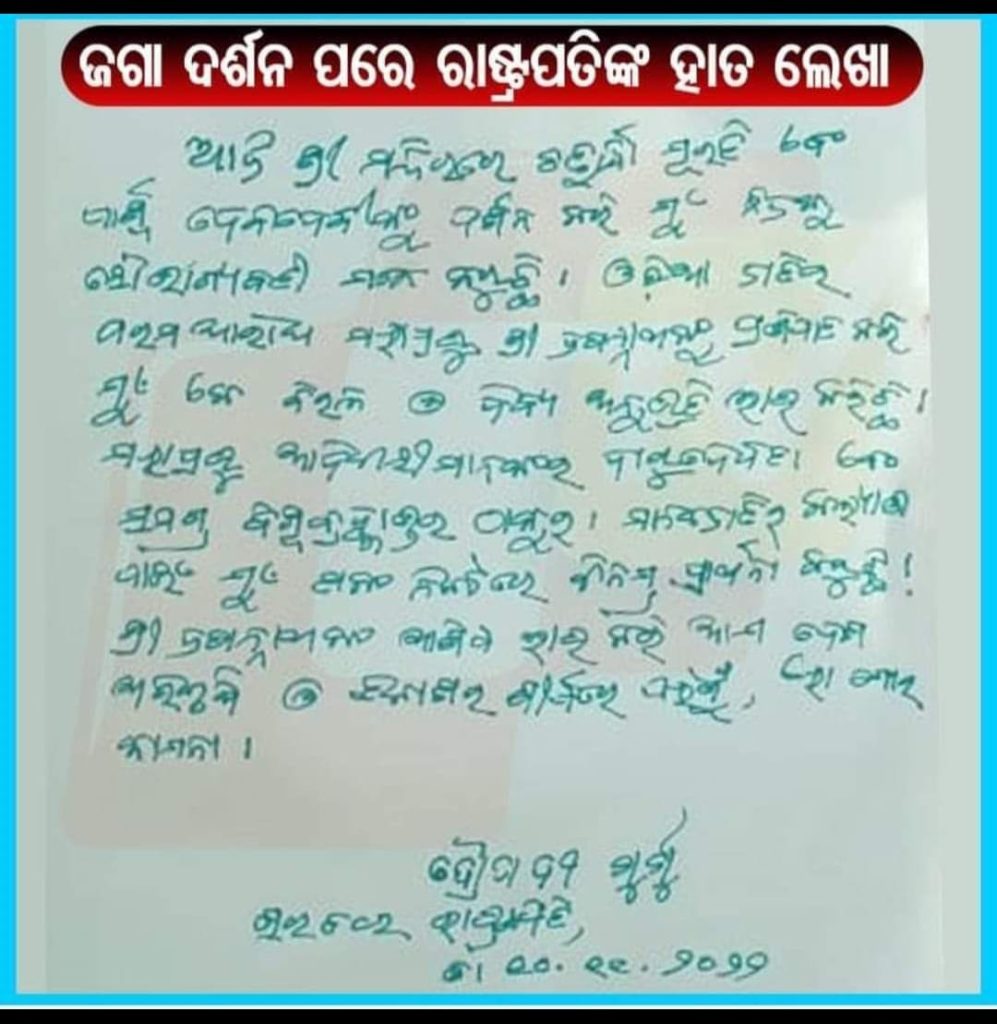 ଜଗା ଦର୍ଶନ ପରେ ରାଷ୍ଟ୍ରପତିଙ୍କ ହାତ ଲେଖା
ଆଜି ଶ୍ରୀ ମନ୍ଦିରରେ ଚତୁର୍ଦ୍ଧା ମୂରତି ଏବଂ
ପାର୍ଶ୍ୱ ଦେବଦେବୀଙ୍କୁ ଦର୍ଶନ କରି ମୁଁ ନିଜକୁ
ସୌଭାଗ୍ୟବତୀ ମନେ କରୁଛି । ଓଡ଼ିଆ ଜାତିର
ପରମ ଆରାଧ୍ୟ ମହାପ୍ରଭୁ ଶ୍ରୀ ଜଗନ୍ନାଥଙ୍କୁ ପ୍ରଣିପାତ କରି
ମୁଁ ଏକ ବିରଳ ଓ ଦିବ୍ୟ ଅନୁଭୂତି ଲାଭ କରିଛି ।
ମହାପ୍ରଭୁ ଆଦିବାସୀମାନଙ୍କର ଦାରୁଦେବତା ଏବଂ
ସମଗ୍ର ବିଶ୍ୱବ୍ରହ୍ମାଣ୍ଡର ଠାକୁର । ମାନବଜାତିର କଲ୍ୟାଣ
ପାଇଁ ମୁଁ ତାଙ୍କ ନିକଟରେ ବିନମ୍ର ପ୍ରାର୍ଥନା କରୁଛି !
ଶ୍ରୀ ଜଗନ୍ନାଥଙ୍କ ଆଶିଷ ଲାଭ କରି ଆମ ଦେଶ
ଅଭିବୃଦ୍ଧି ଓ ବିକାଶର ଶୀର୍ଷରେ ପହଞ୍ଚୁ, ଏହା ମୋର
କାମନା ।
ଦ୍ରୌପଦୀ ମୁର୍ମୁ
ଭାରତର ରାଷ୍ଟ୍ରପତି,
ତା ୧୦.୧୧.୨୦୨୨